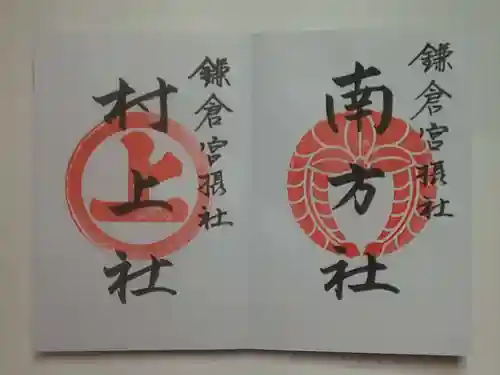 鎌倉宮摂社
南方社
鎌倉宮摂社
村上社
上